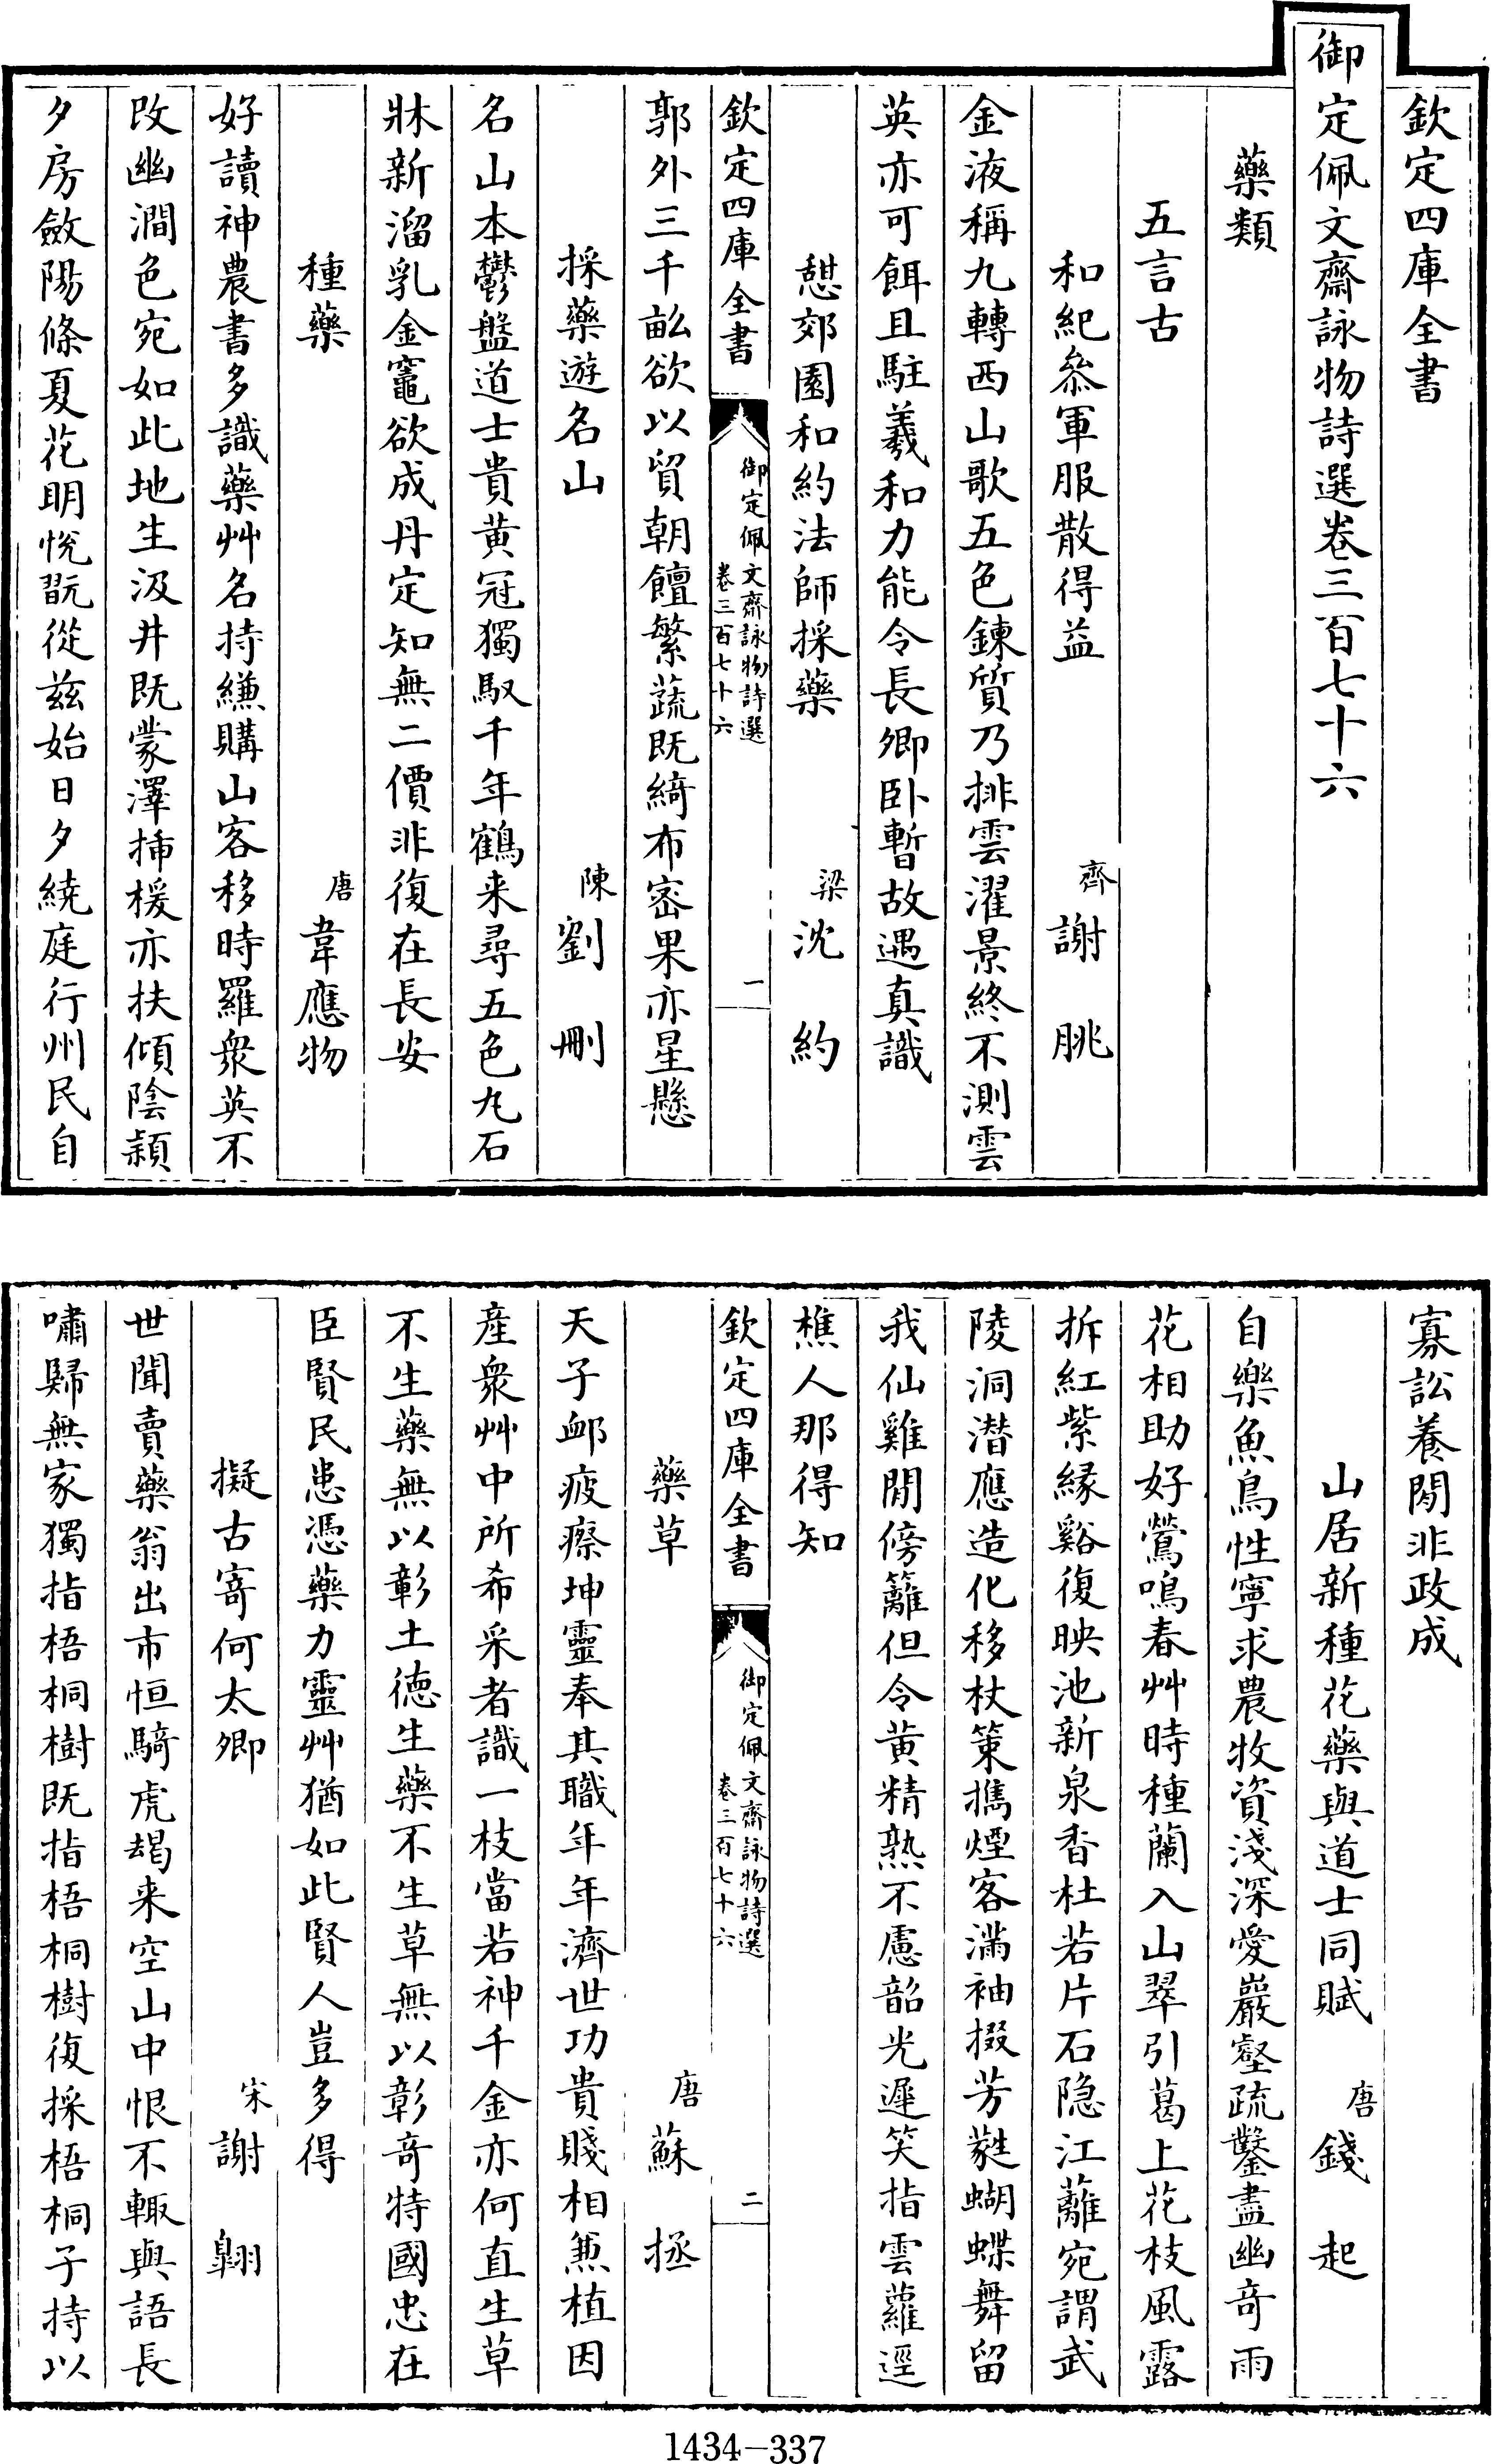 欽定四庫全書
御定佩文齋詠物詩選卷三百七十六
藥類
五言古
和紀叅軍服散得益　齊謝朓
金液稱九轉西山歌五色鍊質乃排雲濯景終不測雲
英亦可餌且駐羲和力能令長卿卧暫故遇真識
憇郊園和約法師採藥　梁沈約
欽定四庫全書　御定佩文齋詠物詩選　卷三百七十六　一
郭外三千畝欲以貿朝饘繁蔬既綺布宻果亦星懸
採藥遊名山　陳劉刪
名山本鬱盤道士貴黄冠獨馭千年鶴来尋五色丸石
牀新溜乳金竈欲成丹定知無二價非復在長安
種藥　唐韋應物
好讀神農書多識藥艸名持縑購山客移時羅衆英不
改幽澗色宛如此地生汲井既蒙澤揷楥亦扶傾陰頴
夕房斂陽條夏花明悅翫從茲始日夕繞庭行州民自
寡訟養閒非政成
山居新種花藥與道士同賦　唐錢起
自樂魚鳥性寧求農牧資淺深愛巖壑疏鑿盡幽奇雨
花相助好鶯鳴春艸時種蘭入山翠引葛上花枝風露
拆紅紫緣谿復映池新泉香杜若片石隐江蘺宛謂武
陵洞潜應造化移杖策攜煙客滿袖掇芳蕤蝴蝶舞留
我仙雞閒傍籬但令黄精熟不慮韶光遲笑指雲蘿逕
樵人那得知
欽定四庫全書　御定佩文齋詠物詩選　卷三百七十六　二
藥草　唐蘇拯
天子䘏疲瘵坤靈奉其職年年濟世功貴賤相兼植因
産衆艸中所希采者識一枝當若神千金亦何直生草
不生藥無以彰土德生藥不生草無以彰奇特國忠在
臣賢民患憑藥力靈艸猶如此賢人豈多得
擬古寄何太卿　宋謝翺
世聞賣藥翁出市恒騎虎朅来空山中恨不輙與語長
嘯歸無家獨指梧桐樹既指梧桐樹復採梧桐子持以
1434-337